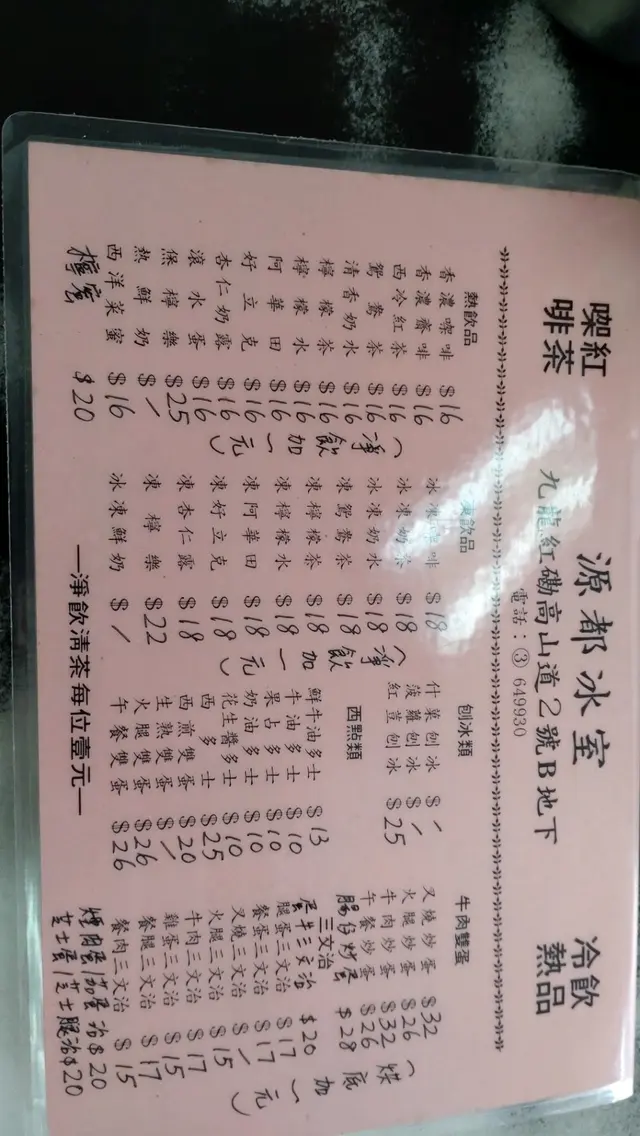 紅茶
㗎啡
源都冰室
冷飲
熱品
九龍紅磡高山道2號B地下
電話：③649930
熱飲品
香濃㗎啡 $16
香濃齋啡 $16
西冷紅茶 $16
鴛鴦茶 $16
清香奶水 $16
檸檬茶 $16
檸檬水 $16
阿華田 $16
好立克 $16
杏仁奶露 $16
滾水蛋 $16
保檸樂 $25
熱鮮奶 $/
西洋菜蜜 $16
檸蜜 $20
(淨飲加一元)
凍飲品
冰凍㗎啡 $18
冰凍奶茶 $18
冰凍奶水 $18
凍鴛鴦茶 $18
凍檸檬茶 $18
凍檸檬水 $18
凍阿華田 $18
凍好立克 $18
凍杏仁露 $18
凍檸樂 $22
冰凍鮮奶 $/
(淨飲加一元)
刨冰類
什菓刨冰 $/
菠蘿刨冰 $/
紅豆刨冰 $25
西點類
鮮牛油多士 $13
牛油多士 $10
果占多士 $10
奶油多士 $10
花生醬多士 $10
西多士 $25
西煎雙蛋 $20
生熟雙蛋 $/
火腿雙蛋 $26
午餐雙蛋 $26
牛肉雙蛋
叉燒炒蛋 $32
火腿炒蛋 $26
牛肉炒蛋 $32
午餐炒蛋 $26
腸仔炒蛋 $28
三文治
蛋牛三文治 $20
腿蛋三文治 $17
餐蛋三文治 $17
叉燒三文治 $/
火腿三文治 $15
牛肉三文治 $17
雞蛋三文治 $15
餐腿三文治 $17
餐肉三文治 $15
煙肉蛋/茄蛋治 $20
芝士蛋/芝士腿治 $20
(烘底加一元)
—淨飲清茶每位壹元—